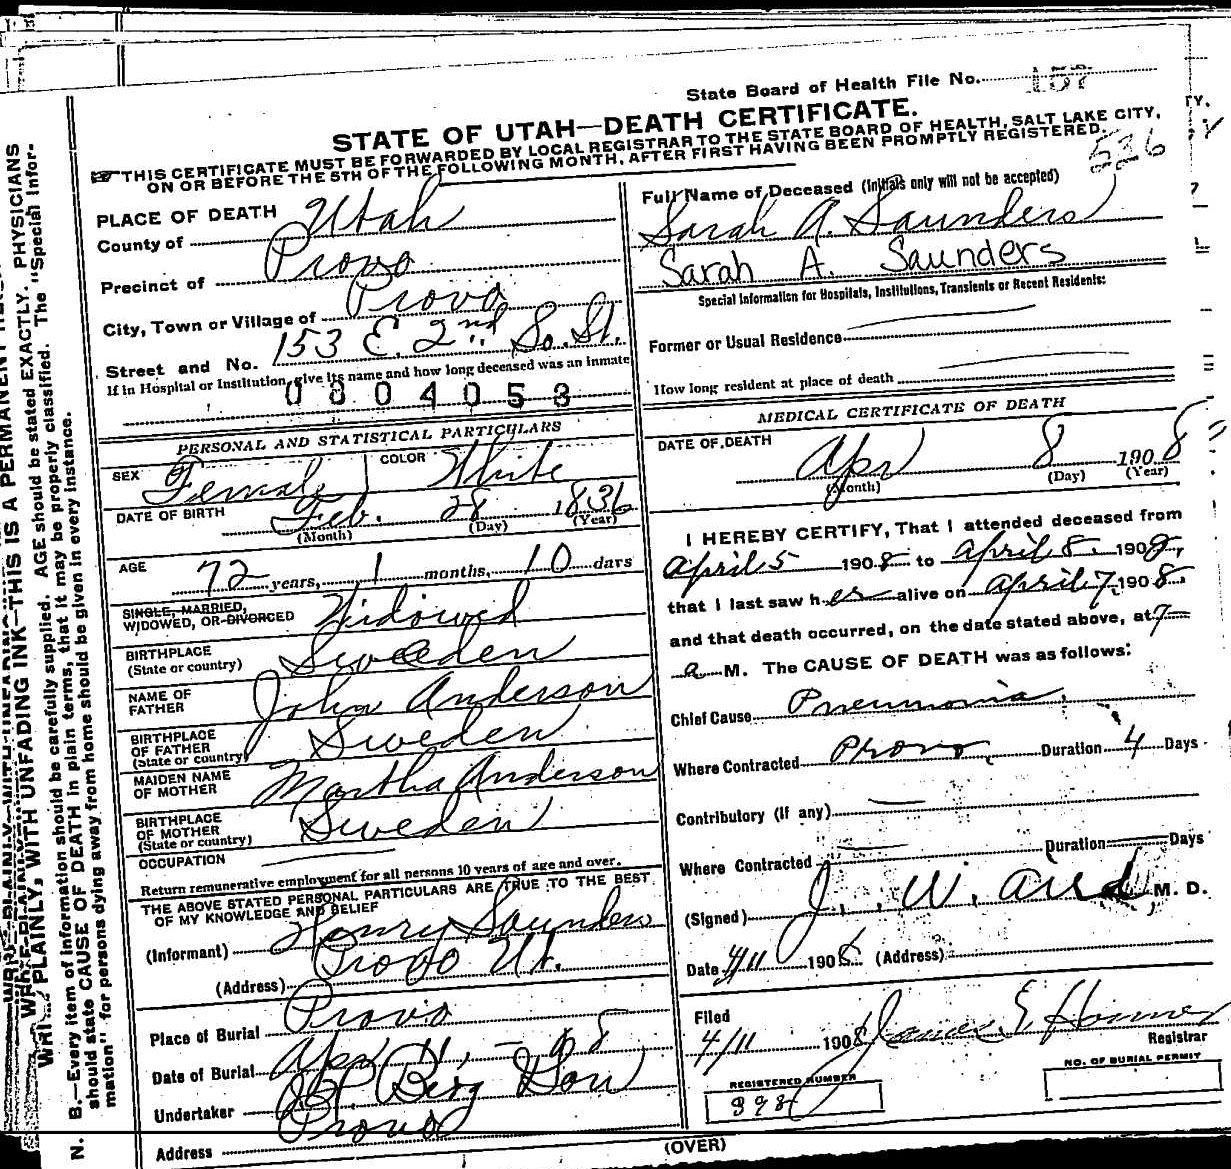 State Board of Health File No. 157
STATE OF UTAH—DEATH CERTIFICATE.
THIS CERTIFICATE MUST BE FORWARDED BY LOCAL REGISTRAR TO THE STATE BOARD OF HEALTH, SALT LAKE CITY,
ON OR BEFORE THE 5TH OF THE FOLLOWING MONTH, AFTER FIRST HAVING BEEN PROMPTLY REGISTERED.
536
PLACE OF DEATH
County of Utah
Precinct of Provo
City, Town or Village of Provo
Street and No. 153 E. 2nd So. St.
If in Hospital or Institution, give its name and how long deceased was an inmate
0804053
PERSONAL AND STATISTICAL PARTICULARS
SEX Female COLOR White
DATE OF BIRTH Feb. 28 1836
(Month) (Day) (Year)
AGE 72 years, 1 months, 10 days
SINGLE, MARRIED,
WIDOWED, OR DIVORCED Widowed
BIRTHPLACE
(State or country) Sweden
NAME OF
FATHER John Anderson
BIRTHPLACE
OF FATHER
(State or country) Sweden
MAIDEN NAME
OF MOTHER Martha Anderson
BIRTHPLACE
OF MOTHER
(State or country) Sweden
OCCUPATION
Return remunerative employment for all persons 10 years of age and over.
THE ABOVE STATED PERSONAL PARTICULARS ARE TRUE TO THE BEST
OF MY KNOWLEDGE AND BELIEF
(Informant) Henry Saunders
(Address) Provo Ut.
Place of Burial Provo
Date of Burial Apr 11, - 08
Undertaker Berg Son
Address Provo
Full Name of Deceased (Initials only will not be accepted)
Sarah A. Saunders
Sarah A. Saunders
Special Information for Hospitals, Institutions, Transients or Recent Residents:
Former or Usual Residence
How long resident at place of death
MEDICAL CERTIFICATE OF DEATH
DATE OF DEATH Apr 8 1908
(Month) (Day) (Year)
I HEREBY CERTIFY, That I attended deceased from
April 5 1908 to April 8 1908,
that I last saw her alive on April 7, 1908.
and that death occurred, on the date stated above, at 7
a M. The CAUSE OF DEATH was as follows:
Chief Cause Pneumonia
Where Contracted Provo Duration 4 Days
Contributory (if any)
Where Contracted Duration Days
(Signed) J. W. Aird, M. D.
Date 4/11 1908 (Address)
Filed
4/11 1908 James E Homer
Registrar
REGISTERED NUMBER
398
NO. OF BURIAL PERMIT
(OVER)
WRITE PLAINLY, WITH UNFADING INK—THIS IS A PERMANENT
N. B.—Every item of information should be carefully supplied. AGE should be stated EXACTLY. PHYSICIANS
should state CAUSE OF DEATH in plain terms, that it may be properly classified. The "Special Infor-
mation" for persons dying away from home should be given in every instance.